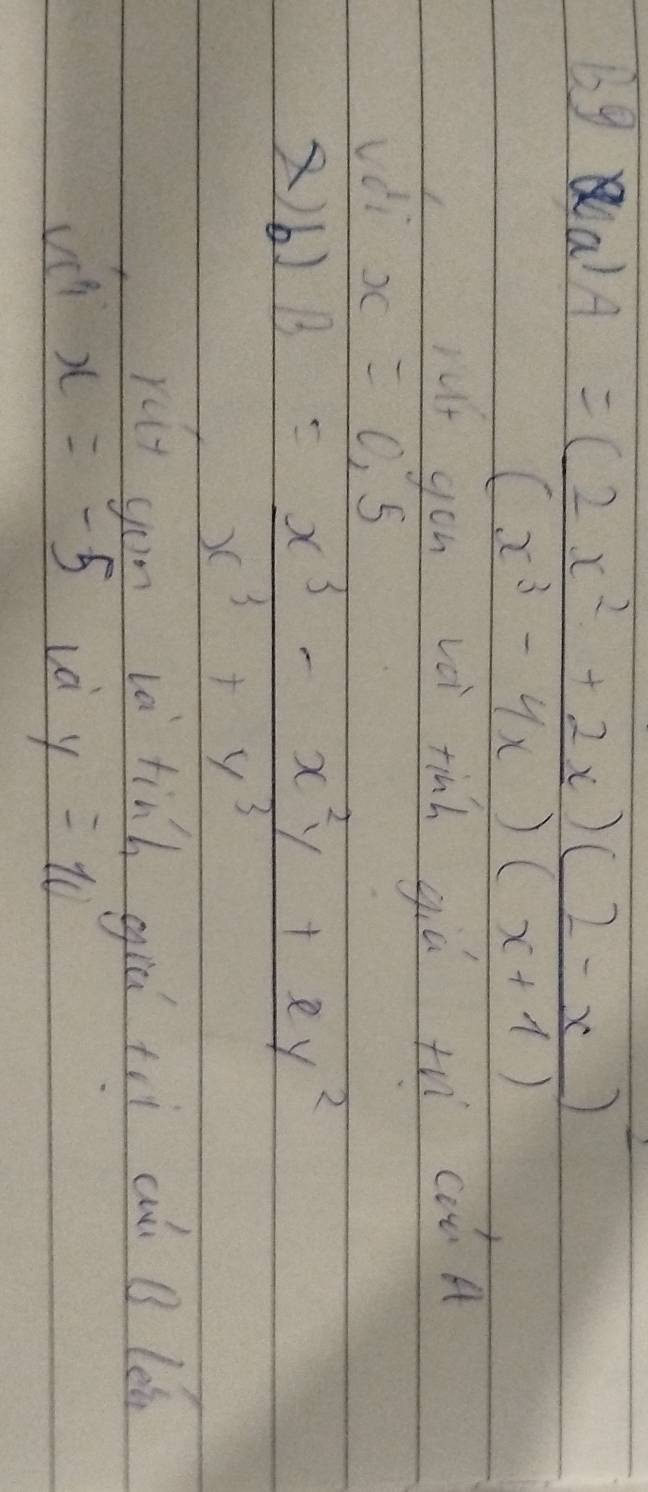 B9 a) A = (2x² + 2x)(2 - x)²
(x³ - 4x)(x + 1)
rút gọn và tính giá trị của A
với x = 0,5
2)b) B = x³ - x²y + xy²
x³ + y³
rút gọn và tính giá trị của B
với x = -5 và y = 10